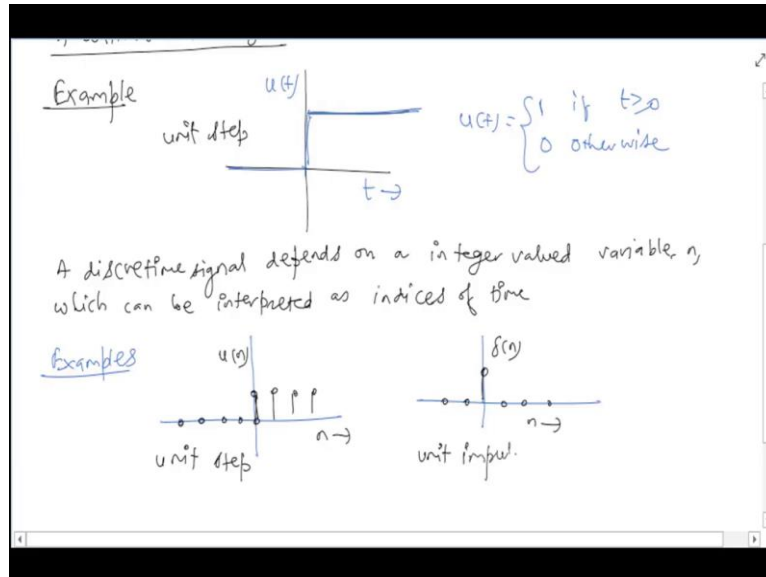 Example
u(t)
unit step
t→
u(t) = { 1 if t≥0
0 otherwise
A discretime signal depends on a integer valued variable n,
which can be interpreted as indices of time
Examples
u(n)
n→
unit step
δ(n)
n→
unit impul.